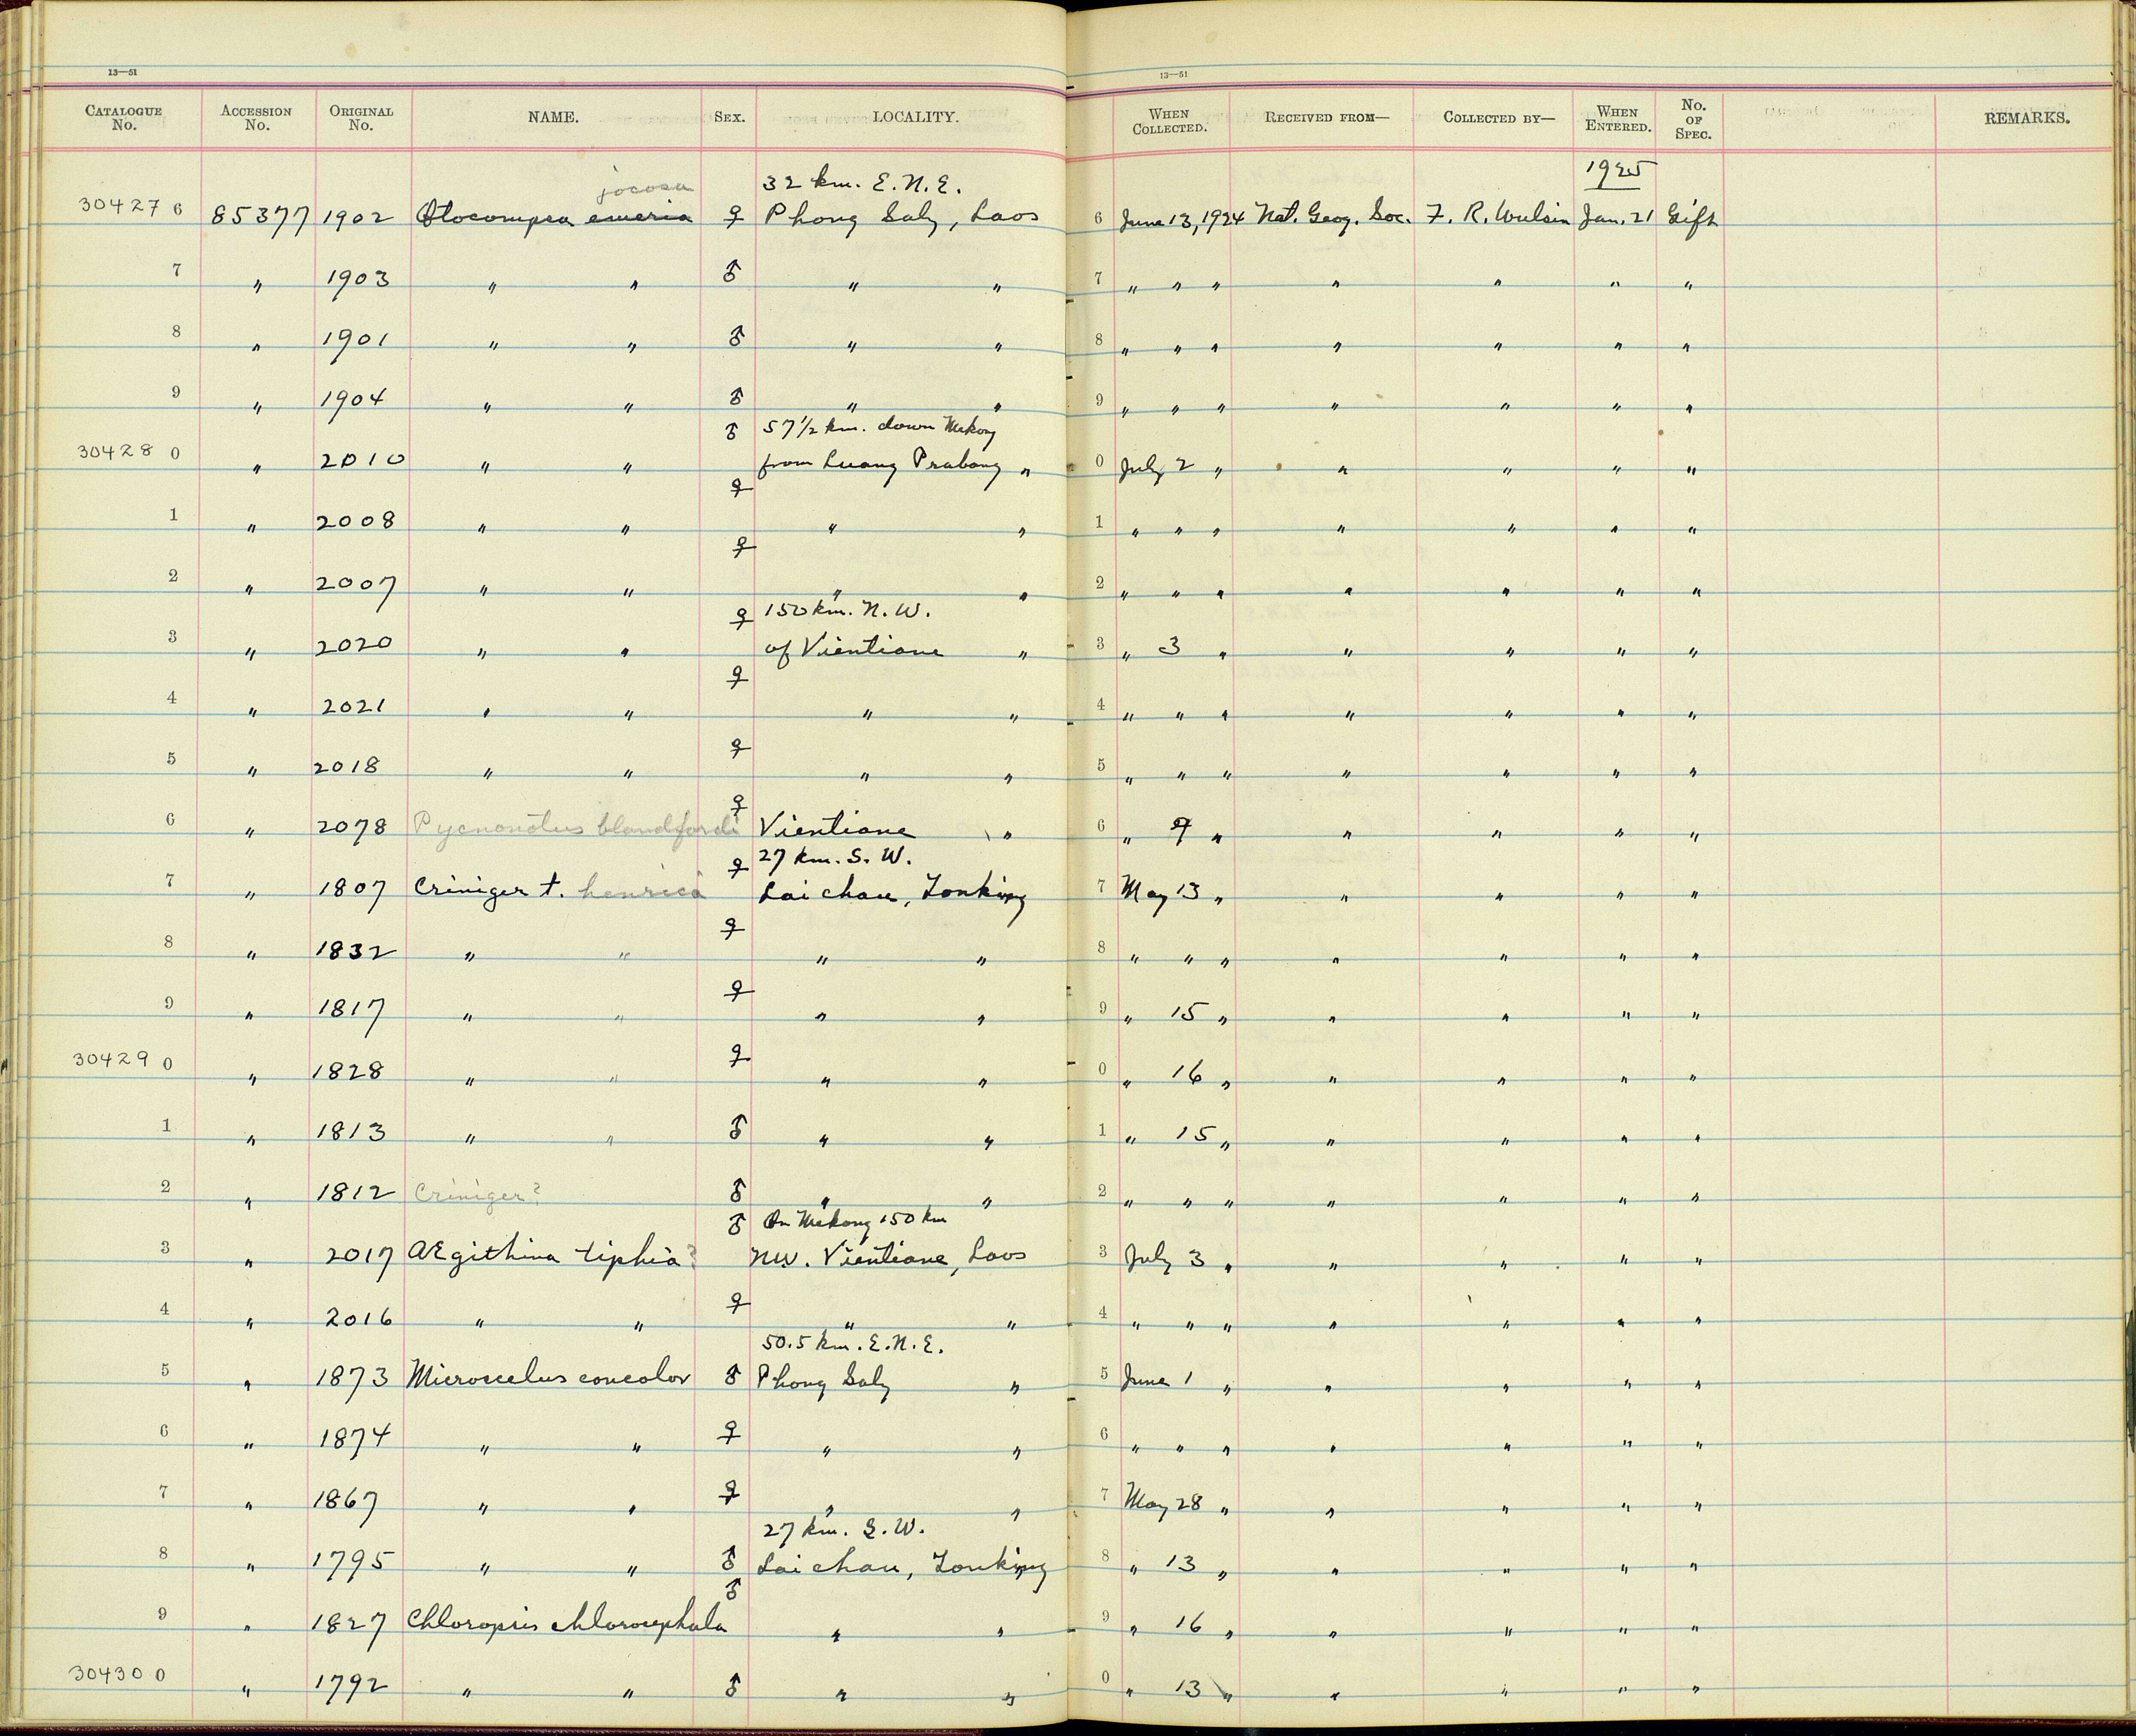 13—51 13—51
CATALOGUE No. ACCESSION No. ORIGINAL No. NAME. SEX. LOCALITY. WHEN COLLECTED. RECEIVED FROM— COLLECTED BY— WHEN ENTERED. No. OF SPEC. REMARKS.
jocosa 32 km. E.N.E. 1925
30427 6 85377 1902 Otocompsa emeria ♀ Phong Saly, Laos 6 June 13, 1924 Nat. Geog. Soc. F. R. Wulsin Jan. 21 Gift
7 " 1903 " " ♂ " " 7 " " " " " " "
8 " 1901 " " ♂ " " 8 " " " " " " "
9 " 1904 " " ♂ " " 9 " " " " " " "
♂ 57 1/2 km. down Mekong
30428 0 " 2010 " " from Luang Prabang " 0 July 2 " " " " "
1 " 2008 " " ♀ " " 1 " " " " " " "
2 " 2007 " " ♀ " " 2 " " " " " " "
♀ 150 km. N.W.
3 " 2020 " " of Vientiane " 3 " 3 " " " " "
4 " 2021 " " ♀ " " 4 " " " " " " "
5 " 2018 " " ♀ " " 5 " " " " " " "
6 " 2078 Pycnonotus blandfordi ♀ Vientiane " 6 " 9 " " " " "
♀ 27 km. S.W.
7 " 1807 Criniger t. henrici Laichau, Tonking 7 May 13 " " " " "
8 " 1832 " " ♀ " " 8 " " " " " " "
9 " 1817 " " ♀ " " 9 " 15 " " " " "
30429 0 " 1828 " " ♀ " " 0 " 16 " " " " "
1 " 1813 " " ♂ " " 1 " 15 " " " " "
2 " 1812 Criniger? ♂ " " 2 " " " " " " "
♂ On Mekong 150 km
3 " 2017 Ægithina tiphia? NW. Vientiane, Laos 3 July 3 " " " " "
4 " 2016 " " ♀ " " 4 " " " " " " "
50.5 km. E.N.E.
5 " 1873 Microscelus concolor ♂ Phong Saly " 5 June 1 " " " " "
6 " 1874 " " ♀ " " 6 " " " " " " "
7 " 1867 " " ♀ " " 7 May 28 " " " " "
27 km. S.W.
8 " 1795 " " ♂ Laichau, Tonking 8 " 13 " " " " "
9 " 1827 Chloropsis chlorocephala ♂ " " 9 " 16 " " " " "
30430 0 " 1792 " " ♂ " " 0 " 13 " " " " "